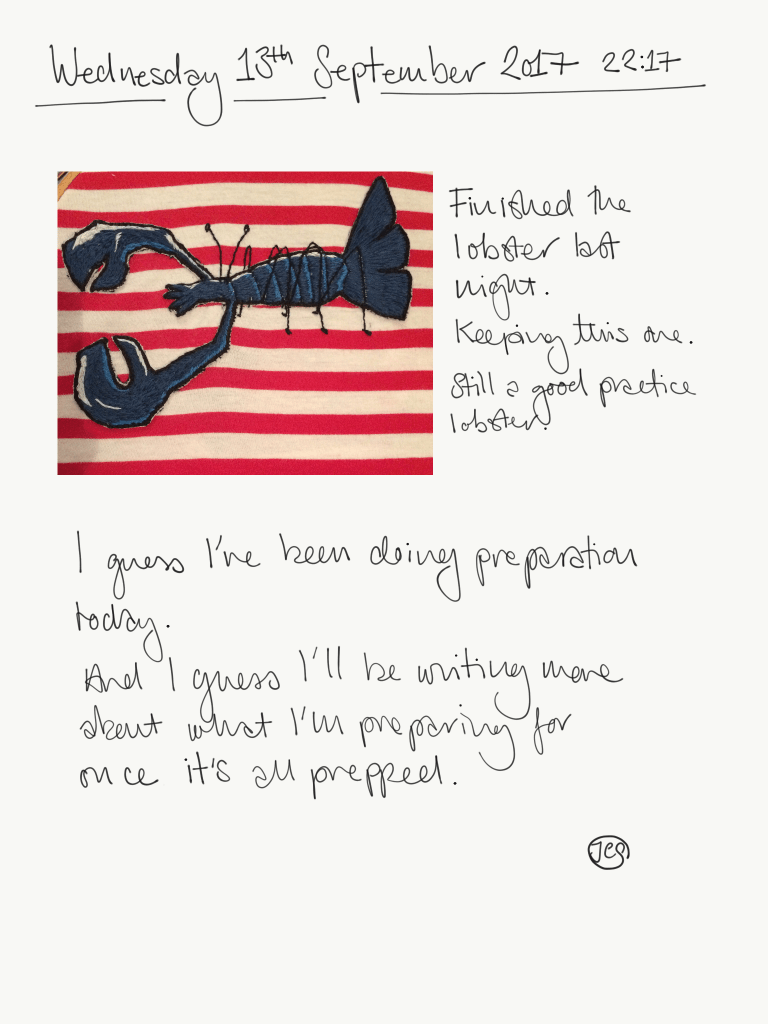 Wednesday 13th September 2017 22:17
Finished the
lobster last
night.
Keeping this one.
Still a good practice
lobster.
I guess I've been doing preparation
today.
And I guess I'll be writing more
about what I'm preparing for
once it's all prepped.